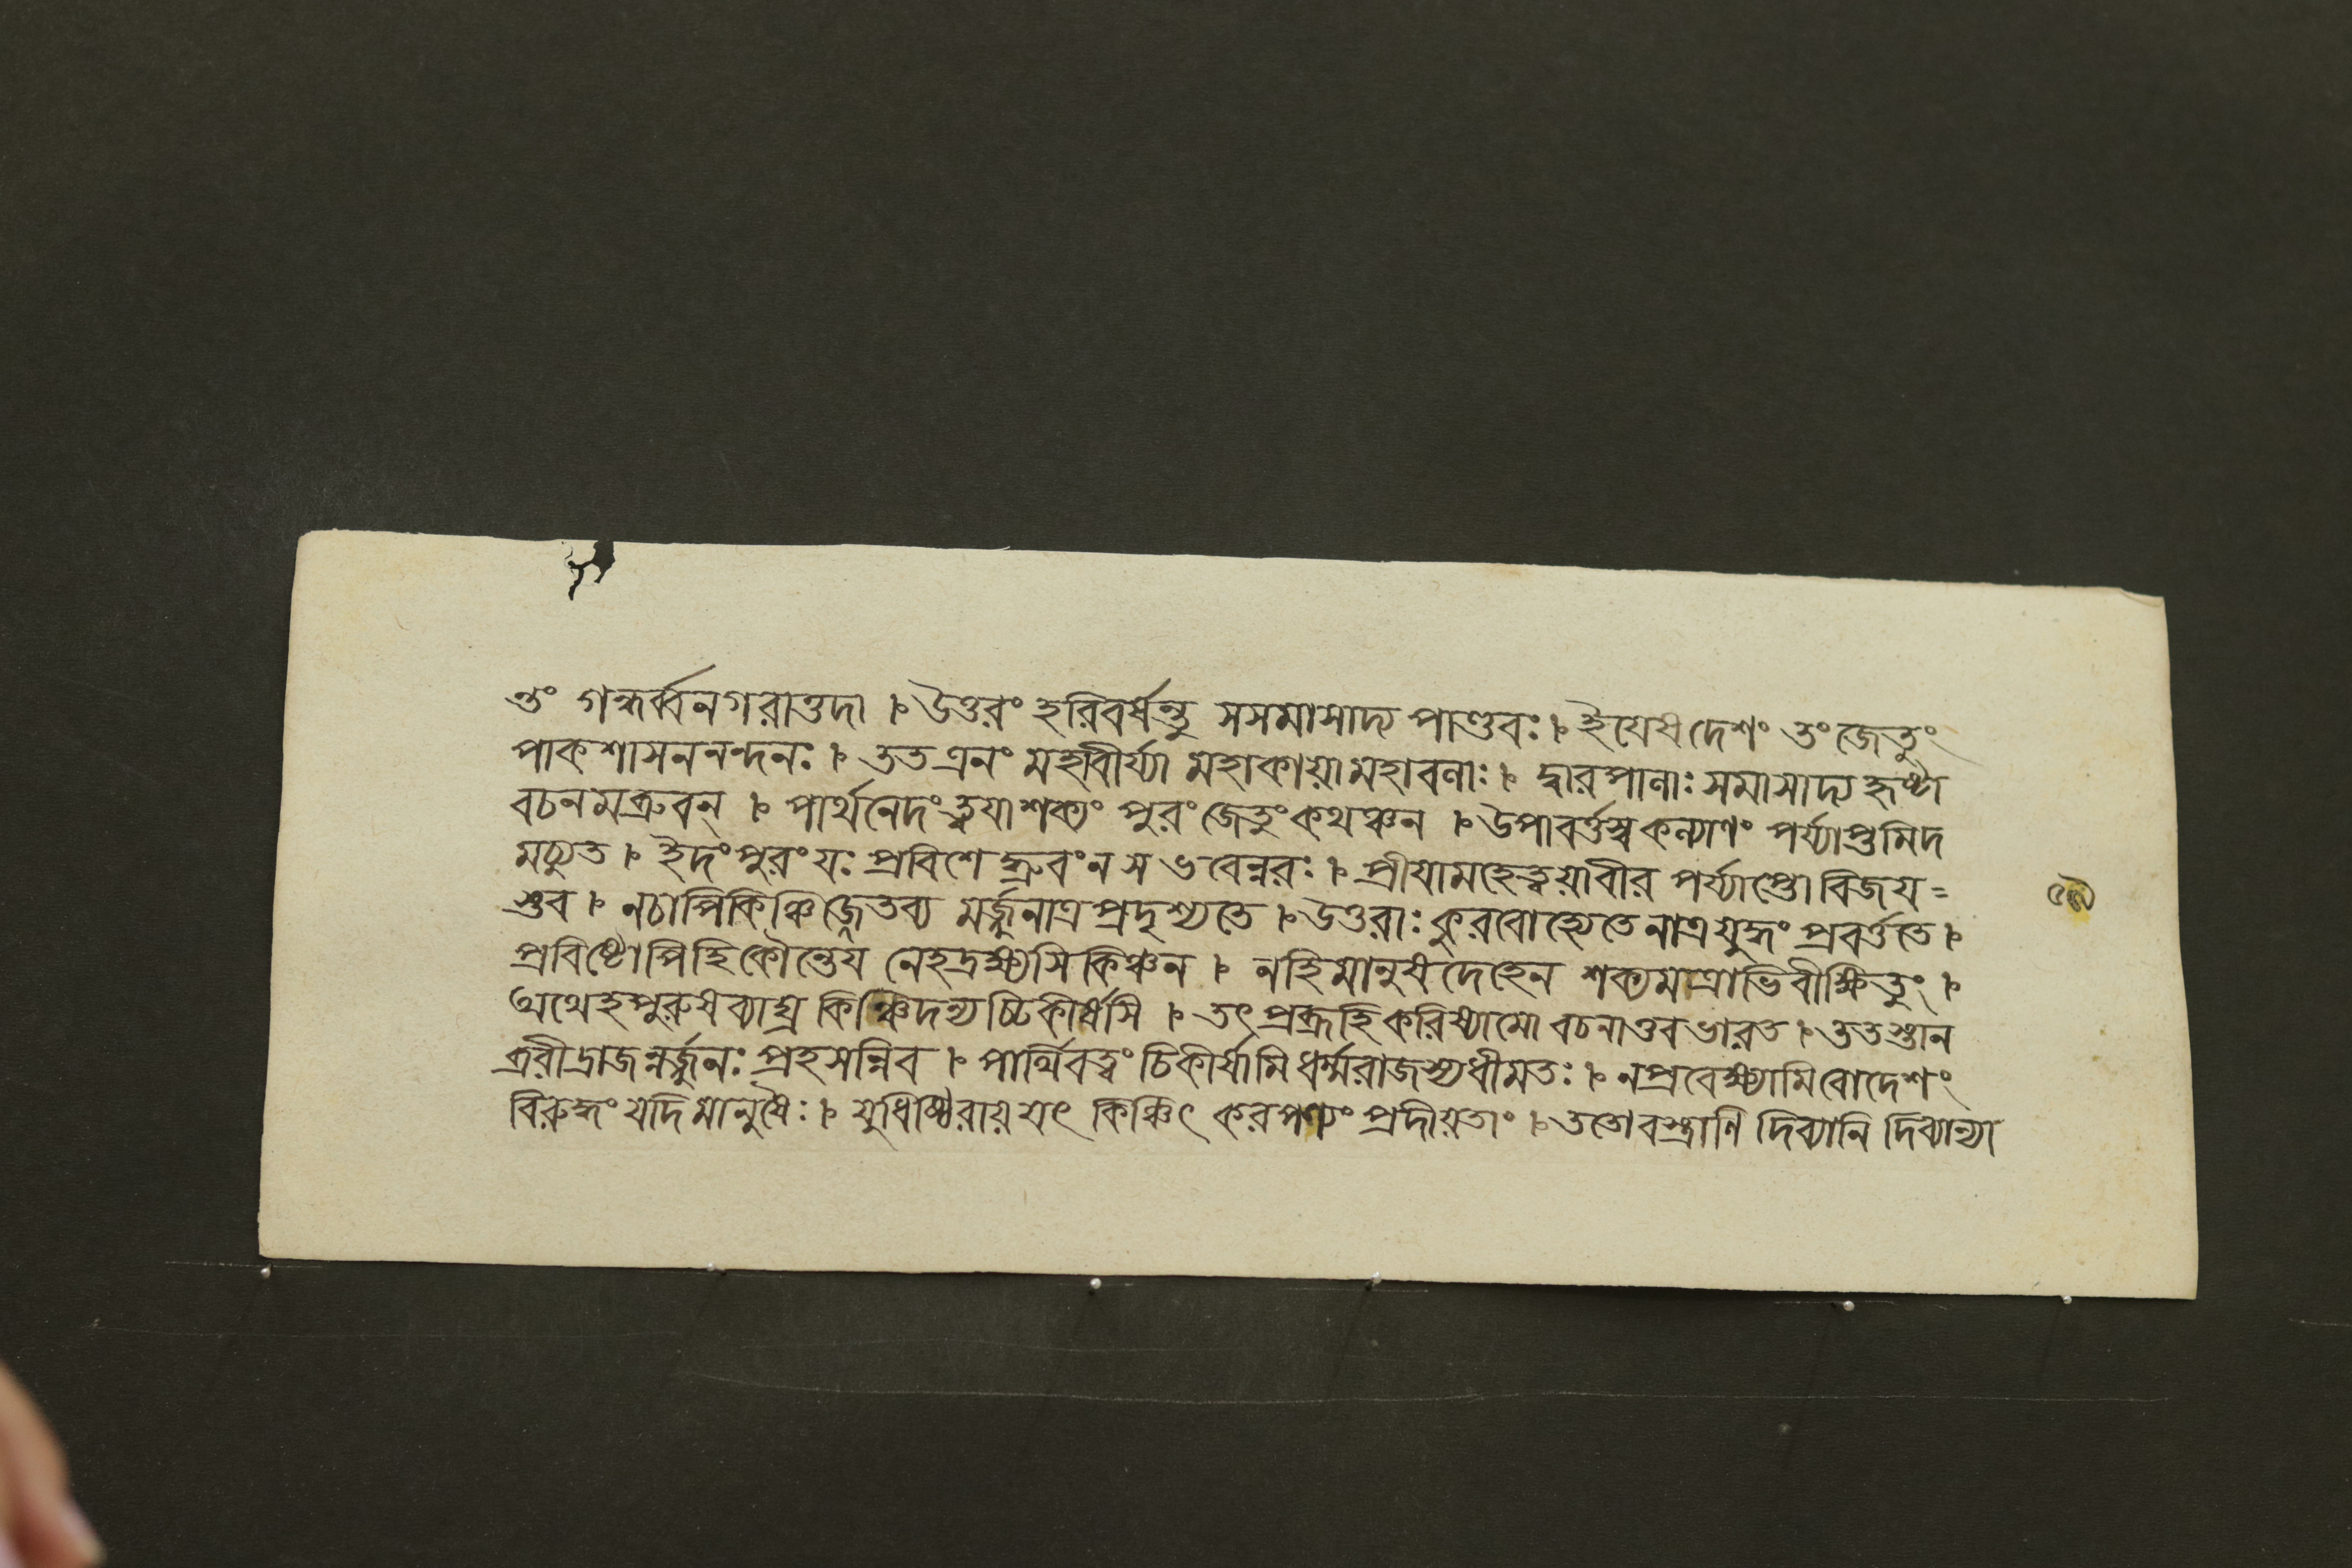 ত্তং গন্ধর্ব্বনগরাত্তদা । উত্তরং হরিবর্ষন্তু সসমাসাদ্য পাণ্ডবঃ । ইযেষদেশং তংজেতুং
পাকশাসননন্দনঃ । ততএনং মহাবীর্য্যা মহাকায়ামহাবলাঃ । দ্বারপালাঃসমাসাদ্যহৃষ্টা
বচনমব্রুবন্ । পার্থনেদংত্বযাশক্যং পুরংজেতুংকথঞ্চন । উপাবর্ত্তস্বকল্যাণং পর্য্যাপ্তমিদ
মচ্যুত । ইদংপুরংযঃ প্রবিশেদ্ধ্রুবংনসভবেন্নরঃ । প্রীযামহেত্বয়াবীর পর্য্যাপ্তোবিজয=
স্তব । নচাপিকিঞ্চিজ্জেতব্য মর্জ্জুনাত্রপ্রদৃশ্যতে । উত্তরাঃকুরবোহ্যেতেনাত্রযুদ্ধং প্রবর্ত্ততে ।
প্রবিষ্টোপিহিকৌন্তেয নেহদ্রক্ষ্যসিকিঞ্চন । নহিমানুষদেহেন শক্যমত্রাভিবীক্ষিতুং ।
অথেহপুরুষব্যাঘ্র কিঞ্চিদন্যচ্চিকীর্ষসি । তৎপ্রব্রূহিকরিষ্যামো বচনাত্তবভারত । ততস্তান
ব্রবীদ্রাজন্নর্জ্জুনঃ প্রহসন্নিব । পার্থিবত্বং চিকীর্ষামিধর্ম্মরাজস্যধীমতঃ । নপ্রবেক্ষ্যামিবোদেশং
বিরুদ্ধংযদিমানুষৈঃ । যুধিষ্ঠিরায়যৎ কিঞ্চিৎ করপণ্যং প্রদীয়তাং । ততোবস্ত্রাণি দিব্যানি দিব্যান্যা